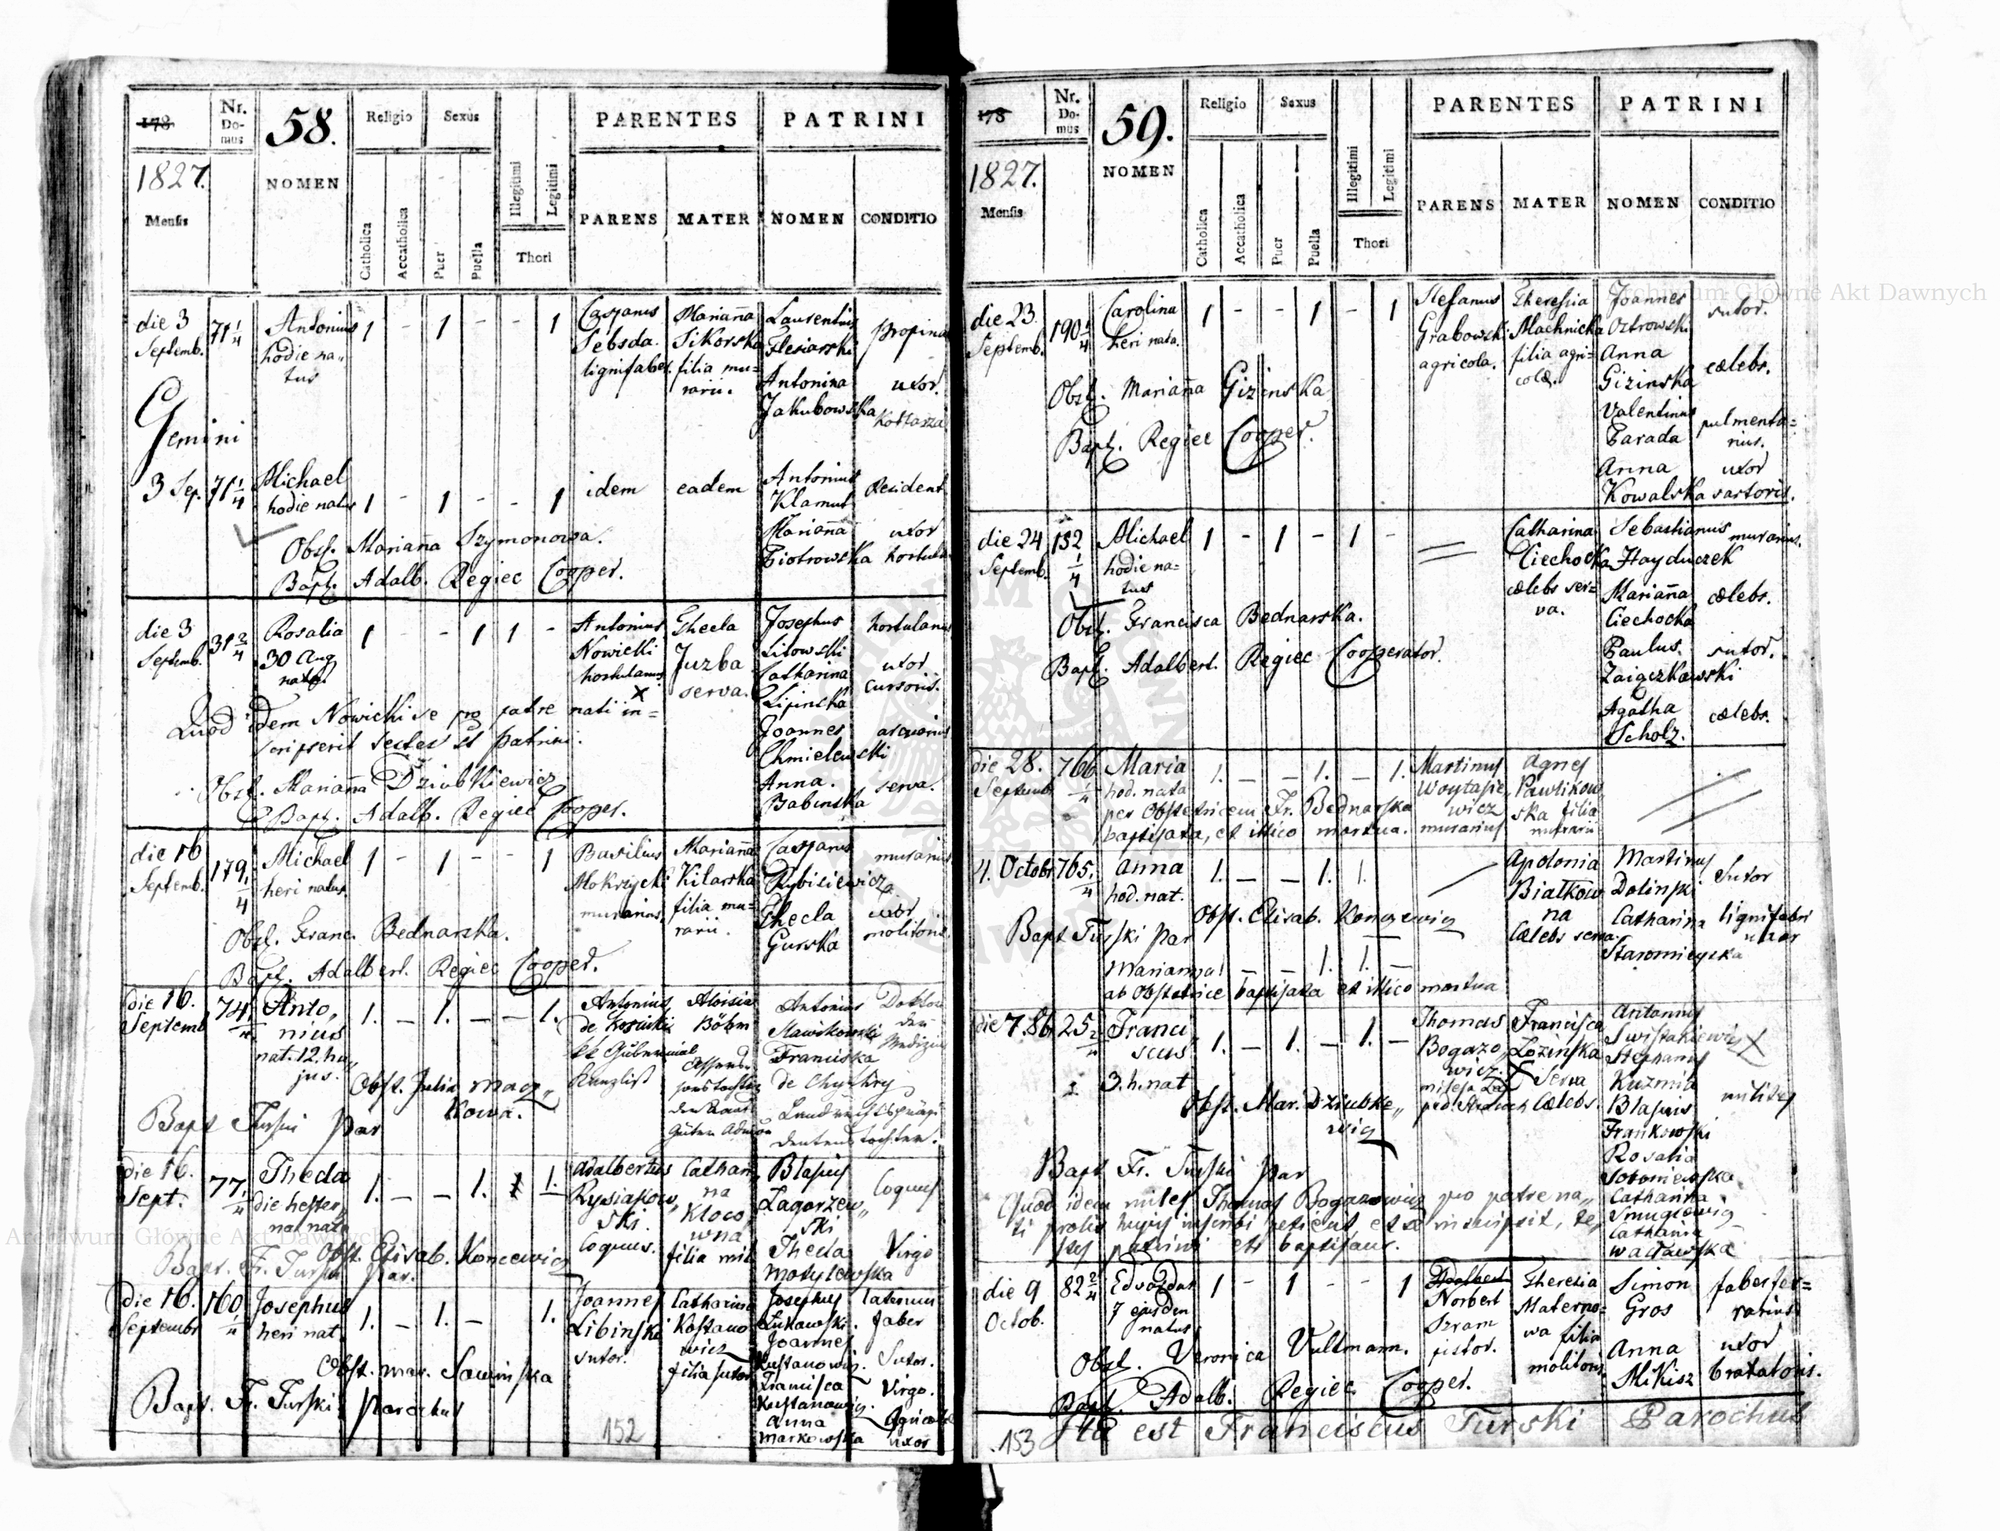 178
Nr. Domus
58.
Religio
Sexus
PARENTES
PATRINI
1827.
Mensis
NOMEN
Catholica
Accatholica
Puer
Puella
Illegitimi
Legitimi
Thori
PARENS
MATER
NOMEN
CONDITIO
die 3
Septemb.
71 1/4
Antonius
hodie na-
tus
1 - 1 - - 1
Casparus
Sebsda
lignifaber
Marianna
Sikorska
filia mu-
rarii.
Laurentius
Flesiarski
Antonina
Jakubowska
propina
uxor.
Gemini
3 Sep.
71 1/4
Michael
hodie natus
1 - 1 - - 1
idem
eadem
Antonius
Klamut
Marianna
Piotrowska
Resident
uxor
Obst. Marianna Szymonowa.
Bapt. Adalb. Regiec Cooper.
die 3
Septemb.
31 2/4
Rosalia
30 Aug
nata.
1 - - 1 1 -
Antonius
Nowicki
hortulanus
Thecla
Juzba
serva.
Josephus
Litowski
Catharina
Lipinska
Joannes
Chmielewski
Anna
Babinska
hortulanus
uxor
cursoris.
serva.
Quod idem Nowicki se pro patre nati in=
scripserit testes st patrini.
Obst. Marianna Dziubkiewicz
Bapt. Adalb. Regiec Cooper.
die 16
Septemb.
179 1/4
Michael
heri natus
1 - 1 - - 1
Basilius
Mokrzycki
murarius.
Marianna
Kilarska
filia mu-
rarii.
Casparus
Rybisiewicz
Thecla
Gurska
murarius
uxor
molitoris.
Obst. Franc. Bednarska.
Bapt. Adalbert. Regiec Cooper.
die 16.
Septemb
74.
Anto,,
nius
nat. 12. hu,,
jus.
1. - 1. - - 1.
Antonius
de Kosinski
kk Gubernial
Kanzlist
Aloisia
Böhm
Antonius
Slawikowski
Franciska
de Chychry
Doktor
der
Medizin
Obst. Julia Macz,,
kowa.
Bapt Turski Par
die 16.
Sept.
77.
Thecla
die hester,,
na nata
1. - - 1. 1.
Adalbertus
Rysiakow,,
ski.
Coquus.
Cathari
na
Kloco,,
wna
filia mil
Blasius
Zagorzew,,
ski
Thecla
Motylewska
Coquus
Virgo
Obst. Elisab. Koncewicz
Bapt. Fr. Turski Par.
die 16.
Septembr
160
Josephus
heri nat.
1. - 1. - 1.
Joannes
Libinski
sutor.
Catharina
Kostano
wicz
filia sutor
Josephus
Lukawski.
Joannes
Kustanowicz.
Francisca
Kustanowicz.
Anna
Markowska
faber
Sutor.
Virgo.
uxor
Obst. Mar. Sawinska
Bapt. Fr. Turski Parochus
152
178
Nr. Domus
59.
Religio
Sexus
PARENTES
PATRINI
1827.
Mensis
NOMEN
Catholica
Accatholica
Puer
Puella
Illegitimi
Legitimi
Thori
PARENS
MATER
NOMEN
CONDITIO
die 23
Septemb.
190 4/4
Carolina
heri nata.
1 - - 1 - 1
Stefanus
Grabowski
agricola.
Theressia
Machnicka
filia agri-
colæ.
Joannes
Ostrowski
Anna
Gizinska
Valentinus
Parada
Anna
Kowalska
sutor.
cælebs.
pulmenta=
rius.
uxor
sartoris.
Obst. Marianna Gizinska
Bapt. Regiec Cooper.
die 24
Septemb.
132 1/4
Michael
hodie na-
tus
1 - 1 - 1 -
Catharina
Ciechocka
cælebs ser-
va.
Sebastianus
Hayduczek
Marianna
Ciechocka
Paulus
Zaigczkowski
Agatha
Scholz.
murarius.
cælebs.
sutor.
cælebs.
Obst. Francisca Bednarska.
Bapt. Adalbert. Regiec Cooperator.
die 28.
Septemb
766
Maria
hod. nata
1. - - 1. - 1.
Martinus
Woytasie
wicz
murarius
Agnes
Pawlikow
ska filia
murarii
per Obstetricem Fr. Bednarska
baptisata, et illico mortua.
4. Octobr
765.
Anna
hod. nat.
1. - - 1. 1.
Apolonia
Białkow
na
Cælebs serva.
Martinus
Dolinski
Catharina
Staromieyska
Sutor
lignifabri
uxor
Obst. Elisab. Koncewicz
Bapt Turski Par
Marianna! - - 1. 1. -
ab Obstetrice baptisata et illico mortua
die 7. 8b
25 2/4
Franci
scus
3. h. nat
1. - 1. - 1. -
Thomas
Bogazo,,
wicz.
Francisca
Lozinska
Serva
Cælebs.
Antonius
Swistakiewicz
Stephanus
Kuzmia
Blasius
Frankowski
Rosalia
Sotoniewska
Catharina
Smuglowicz
Catharina
Wacławska
milites
Obst. Mar. Dziubke,,
wicz
Bapt Fr. Turski Par
Quod idem miles Thomas Bogazowicz pro patre na,,
ti prolis hujus inscribi petierit et se inscripsit, te,,
stes patrini et baptisans.
die 9
Octob.
82 2/4
Edvardus
7 ejusdem
natus
1 - 1 - - 1
Adalbert
Norbert
Szram
pistor.
Theresia
Materno=
wa filia
molitoris
Simon
Gros
Anna
Mikisz
faber fer=
rarius
uxor
braxatoris.
Obst. Veronica Vultmann.
Bapt. Adalb. Regiec Cooper.
153
Ita est Franciscus Turski Parochus
Archiwum Główne Akt Dawnych
Archiwum Główne Akt Dawnych